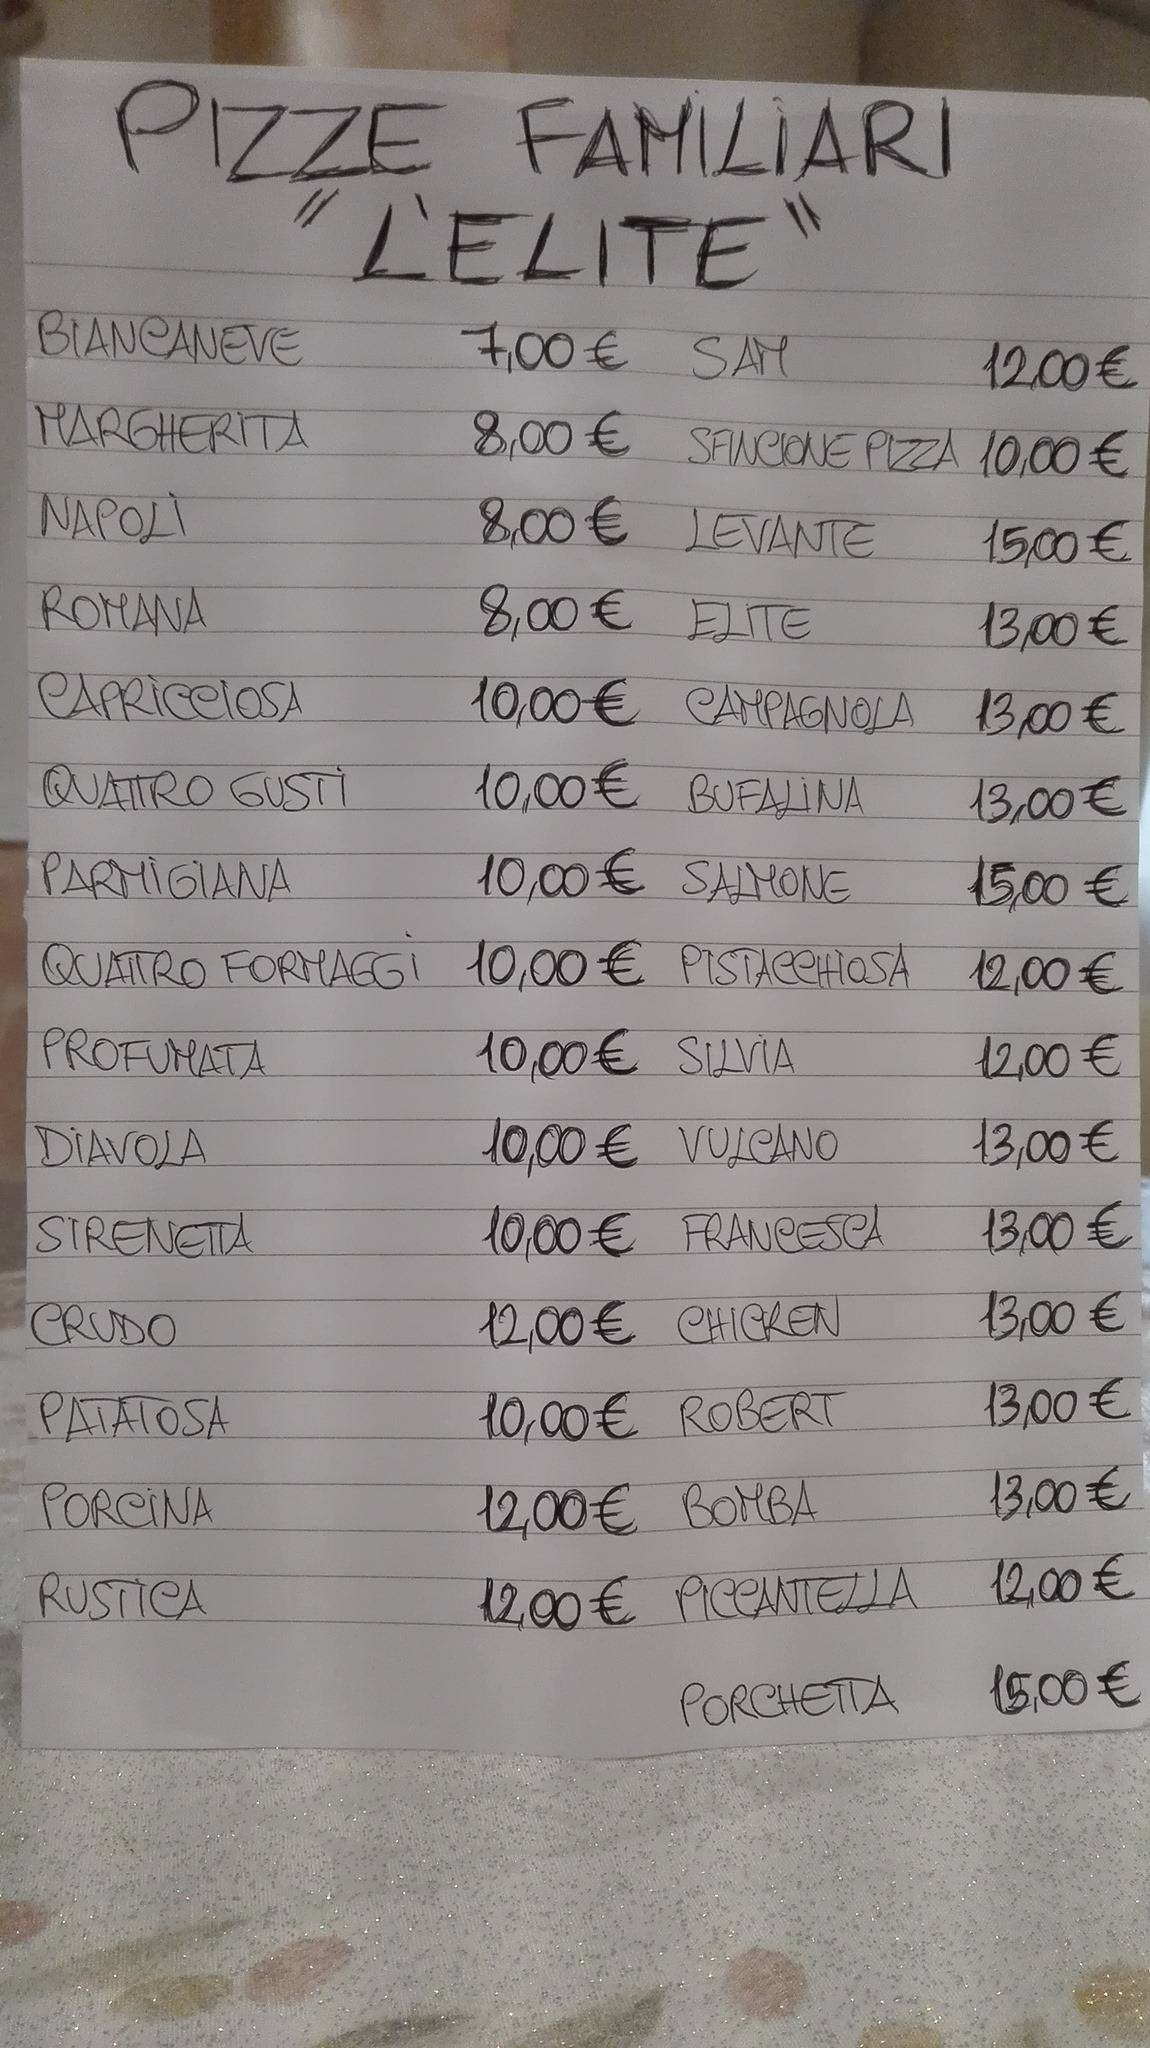 PIZZE FAMILIARI
"L'ELITE"
BIANCANEVE 7,00 € SAM 12,00 €
MARGHERITA 8,00 € SFINCIONE PIZZA 10,00 €
NAPOLI 8,00 € LEVANTE 15,00 €
ROMANA 8,00 € ELITE 13,00 €
CAPRICCIOSA 10,00 € CAMPAGNOLA 13,00 €
QUATTRO GUSTI 10,00 € BUFALINA 13,00 €
PARMIGIANA 10,00 € SALMONE 15,00 €
QUATTRO FORMAGGI 10,00 € PISTACCHIOSA 12,00 €
PROFUMATA 10,00 € SILVIA 12,00 €
DIAVOLA 10,00 € VULCANO 13,00 €
SIRENETTA 10,00 € FRANCESCA 13,00 €
CRUDO 12,00 € CHICKEN 13,00 €
PATATOSA 10,00 € ROBERT 13,00 €
PORCINA 12,00 € BOMBA 13,00 €
RUSTICA 12,00 € PICCANTELLA 12,00 €
PORCHETTA 15,00 €